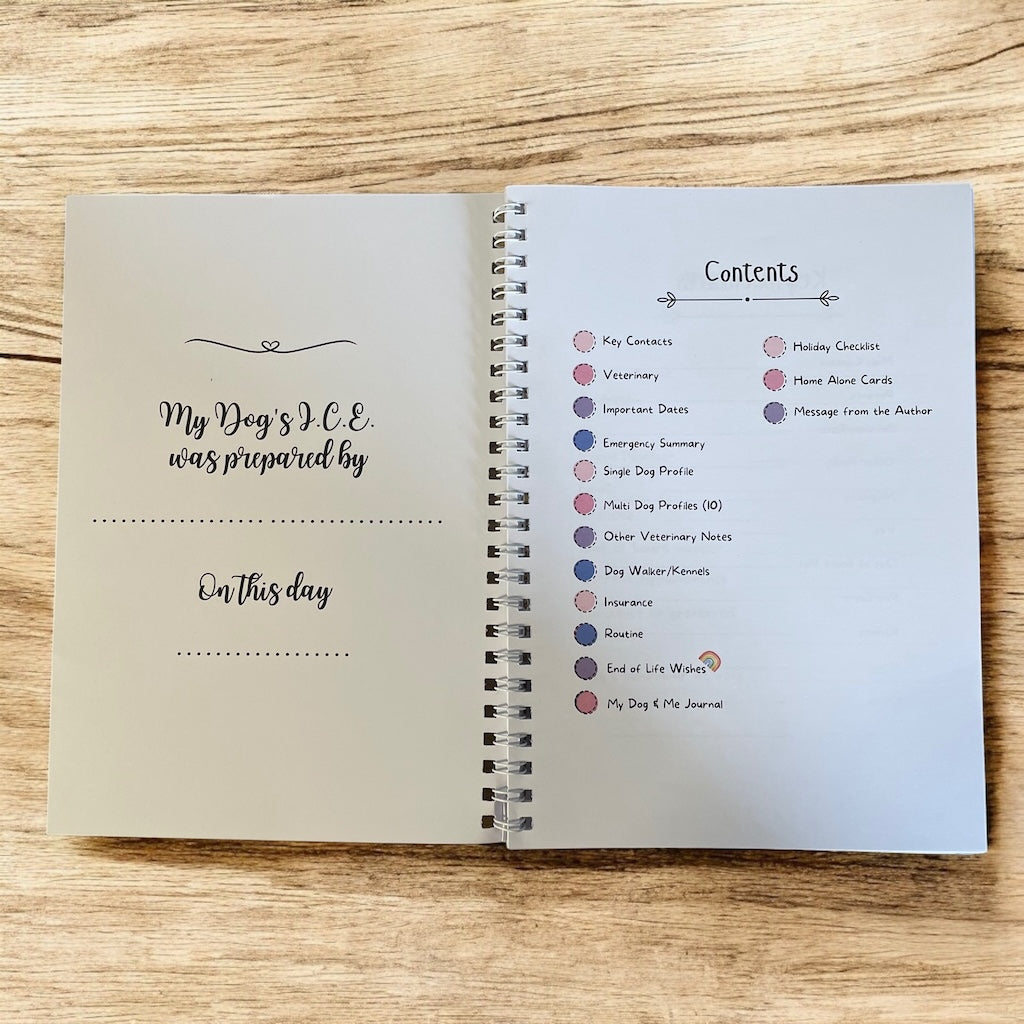 My Dog's I.C.E.
was prepared by
On this day
Contents
Key Contacts
Veterinary
Important Dates
Emergency Summary
Single Dog Profile
Multi Dog Profiles (10)
Other Veterinary Notes
Dog Walker/Kennels
Insurance
Routine
End of Life Wishes
My Dog & Me Journal
Holiday Checklist
Home Alone Cards
Message from the Author